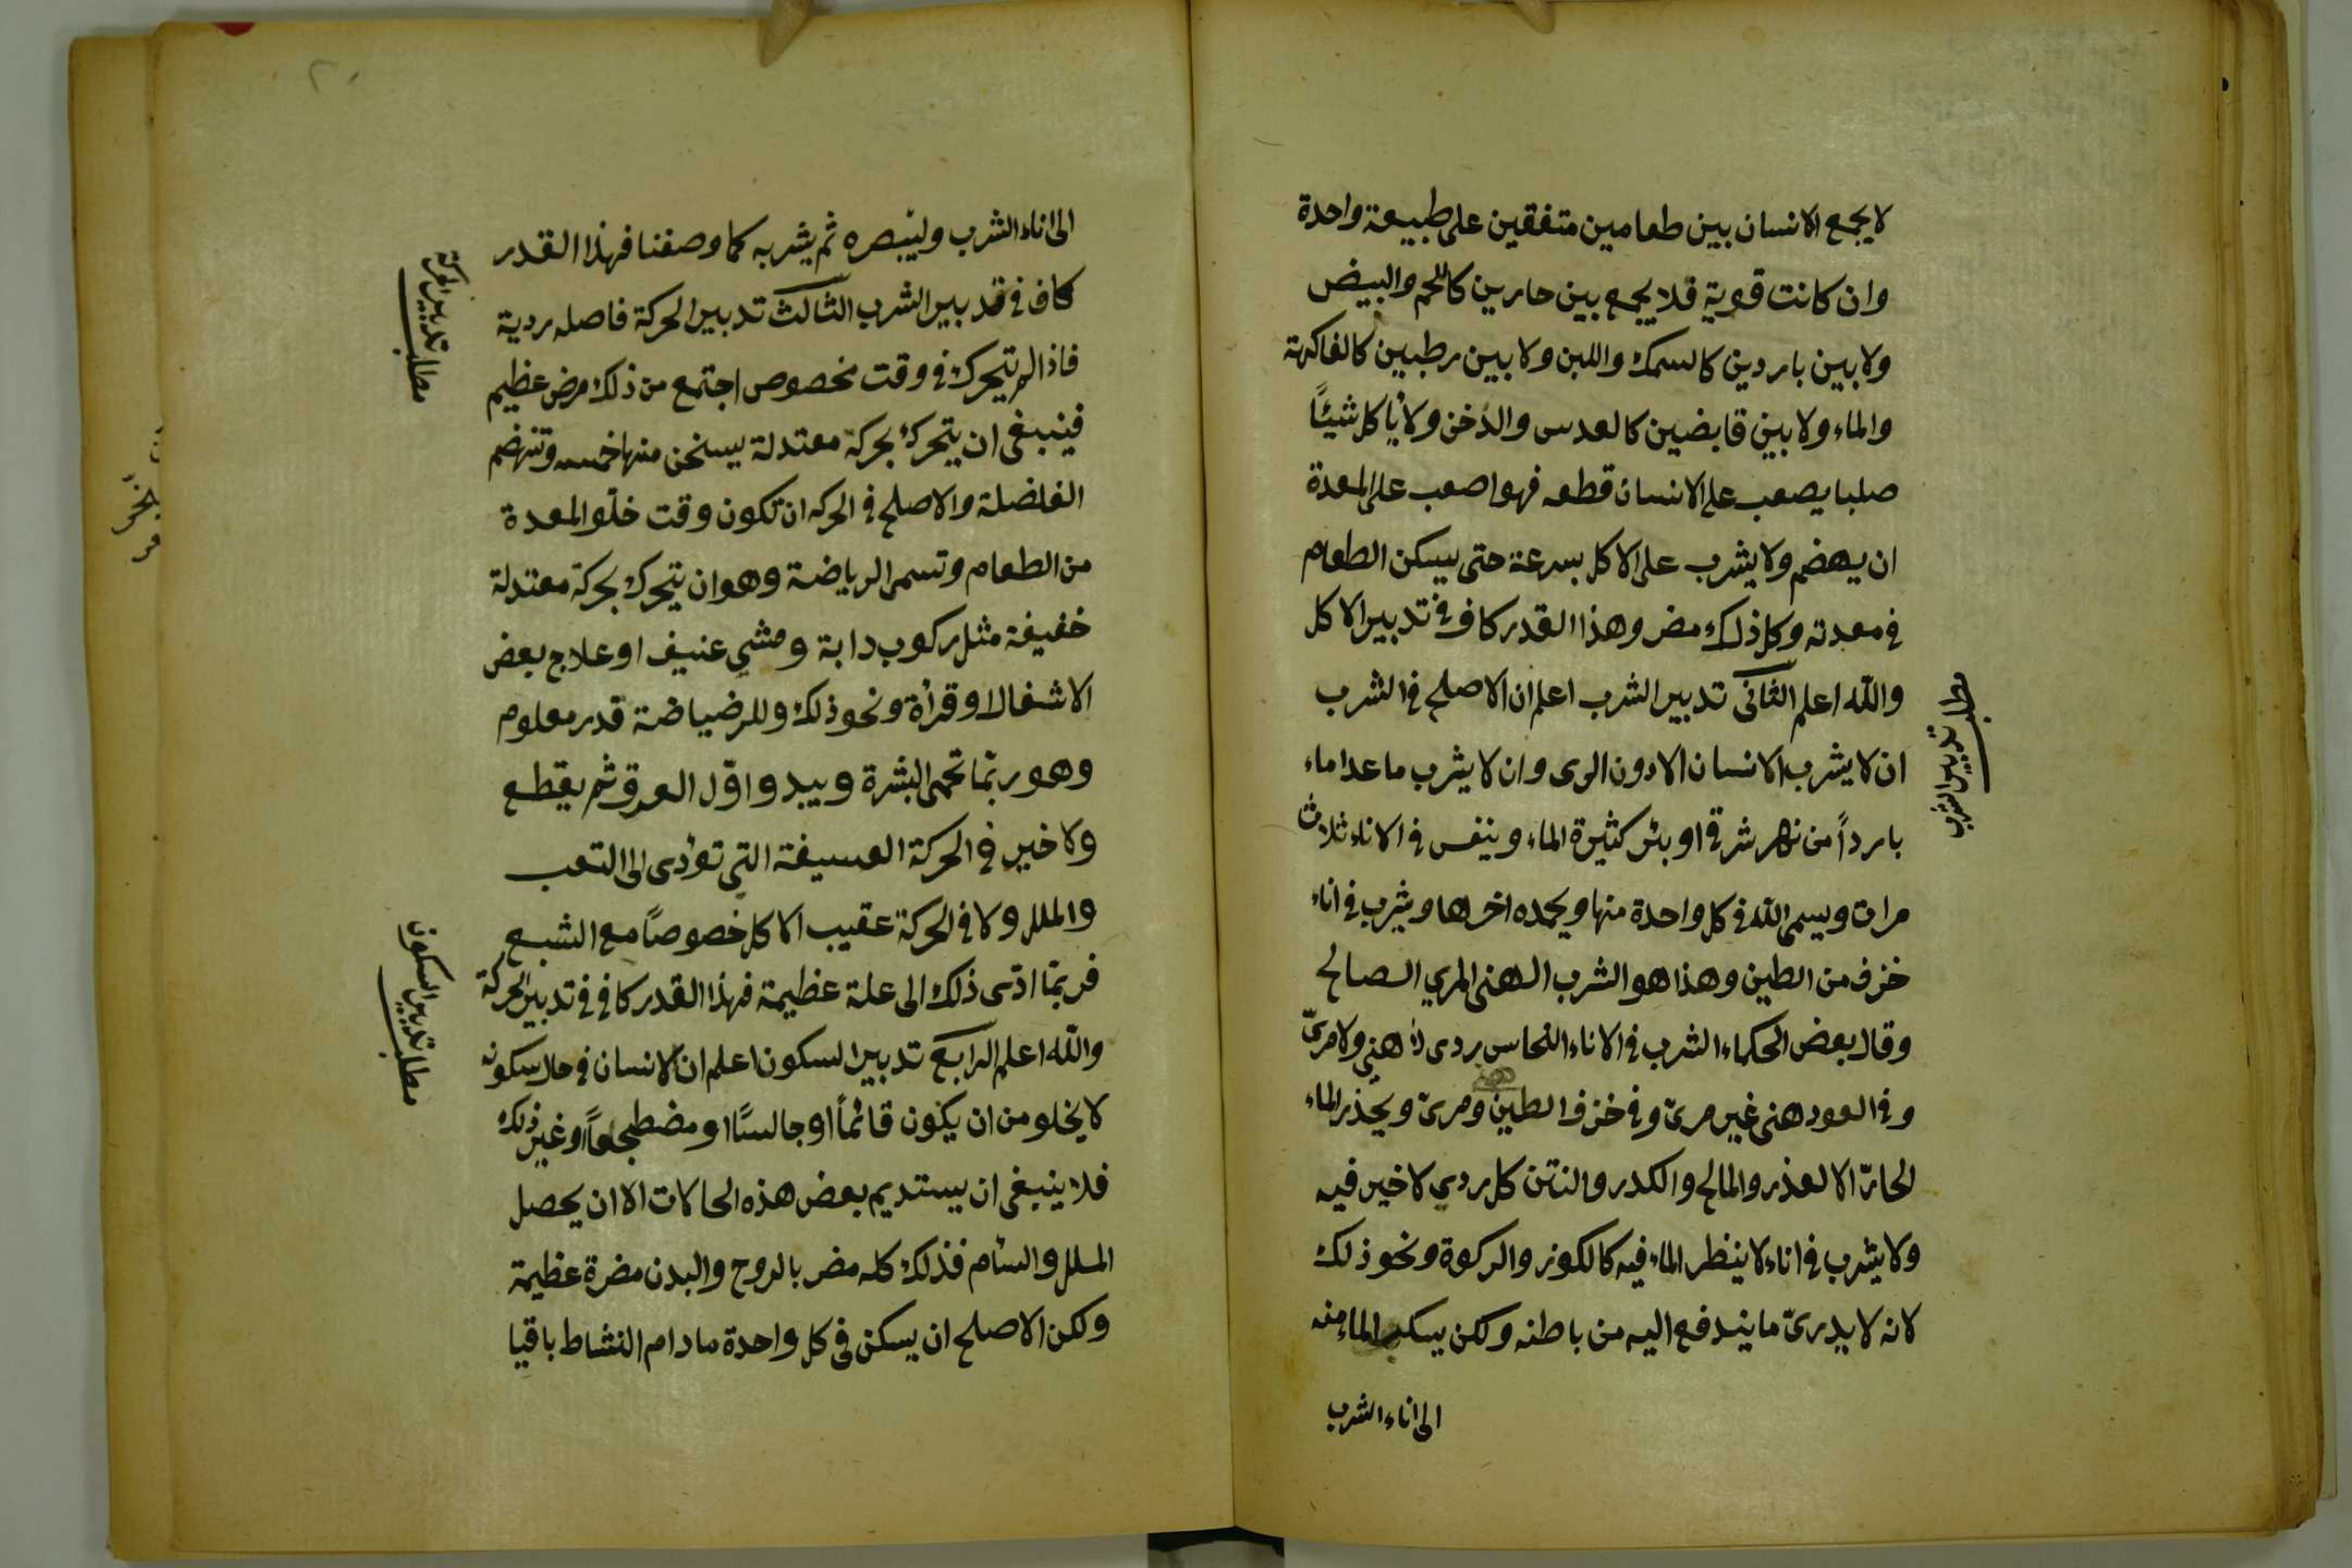 لا يجمع الانسان بين طعامين متفقين على طبيعة واحدة
وان كانت قوية فلا يجمع بين حارين كاللحم والبيض
ولا بين باردين كالسمك واللبن ولا بين رطبين كالفاكهة
والماء ولا بين قابضين كالعدس والدخن ولا يأكل شيئًا
صلبا يصعب على الانسان قطعه فهو اصعب على المعدة
ان يهضم ولا يشرب على الاكل بسرعة حتى يسكن الطعام
في معدته وكل ذلك مضر وهذا القدر كاف في تدبير الاكل
والله اعلم الثانى تدبير الشرب اعلم ان الاصلح في الشرب
ان لا يشرب الانسان الا دون الرى وان لا يشرب ما عدا ماء
باردًا من نهر شرقي او بئر كثيرة الماء ويتنفس في الاناء ثلاث
مرات ويسمى الله في كل واحدة منها ويحمده اخرها ويشرب في اناء
خزف من الطين وهذا هو الشرب الهنى المري الصالح
وقال بعض الحكماء الشرب في الاناء النحاس ردى لا هني ولا مرىّ
وفي العود هنى غير مرىّ وفي خزف الطين ومرىّ ويحذر الماء
الحارّ الا لعذر والمالح والكدر والنتن كل ردي لا خير فيه
ولا يشرب في اناء لا ينظر الماء فيه كالكوز والركوة ونحو ذلك
لانه لا يدرىّ ما يندفع اليه من باطنه ولكن يسكب الماء منه
الى اناء الشرب
مطلب تدبير الشرب
٢٠
الى اناء الشرب ولينبصره ثم يشربه كما وصفنا فهذا القدر
كاف في تدبير الشرب الثالث تدبير الحركة فاصله ردية
فاذا لم يتحرك في وقت مخصوص اجتمع من ذلك مرض عظيم
فينبغى ان يتحرك بحركة معتدلة يسخن منها وتنهضم
الفاضلة والاصلح في الحركه ان تكون وقت خلّو المعدة
من الطعام وتسمى الرياضة وهو ان يتحرك بحركة معتدلة
خفيفة مثل ركوب دابة ومشي عنيف او علاج بعض
الاشغال او قرأة ونحو ذلك وللرضياضة قدر معلوم
وهو ربمّا تحمى البشرة ويبدو اوّل العرق ثم يقطع
ولا خير في الحركة العسيفة التي تؤدى الى التعب
والملل ولا في الحركة عقيب الاكل خصوصًا مع الشبع
فربمّا ادّى ذلك الى علة عظيمة فهذا القدر كاف في تدبير الحركة
والله اعلم الرابع تدبير السكون اعلم ان الانسان في حال سكونه
لا يخلو من ان يكون قائمًا او جالسًا او مضطجعًا او غير ذلك
فلا ينبغى ان يستديم بعض هذه الحالات الا ان يحصل
الملل والسأم فذلك كله مضر بالروح والبدن مضرة عظيمة
ولكن الاصلح ان يسكن في كل واحدة ما دام النشاط باقيا
مطلب تدبير الحركة
مطلب تدبير السكون